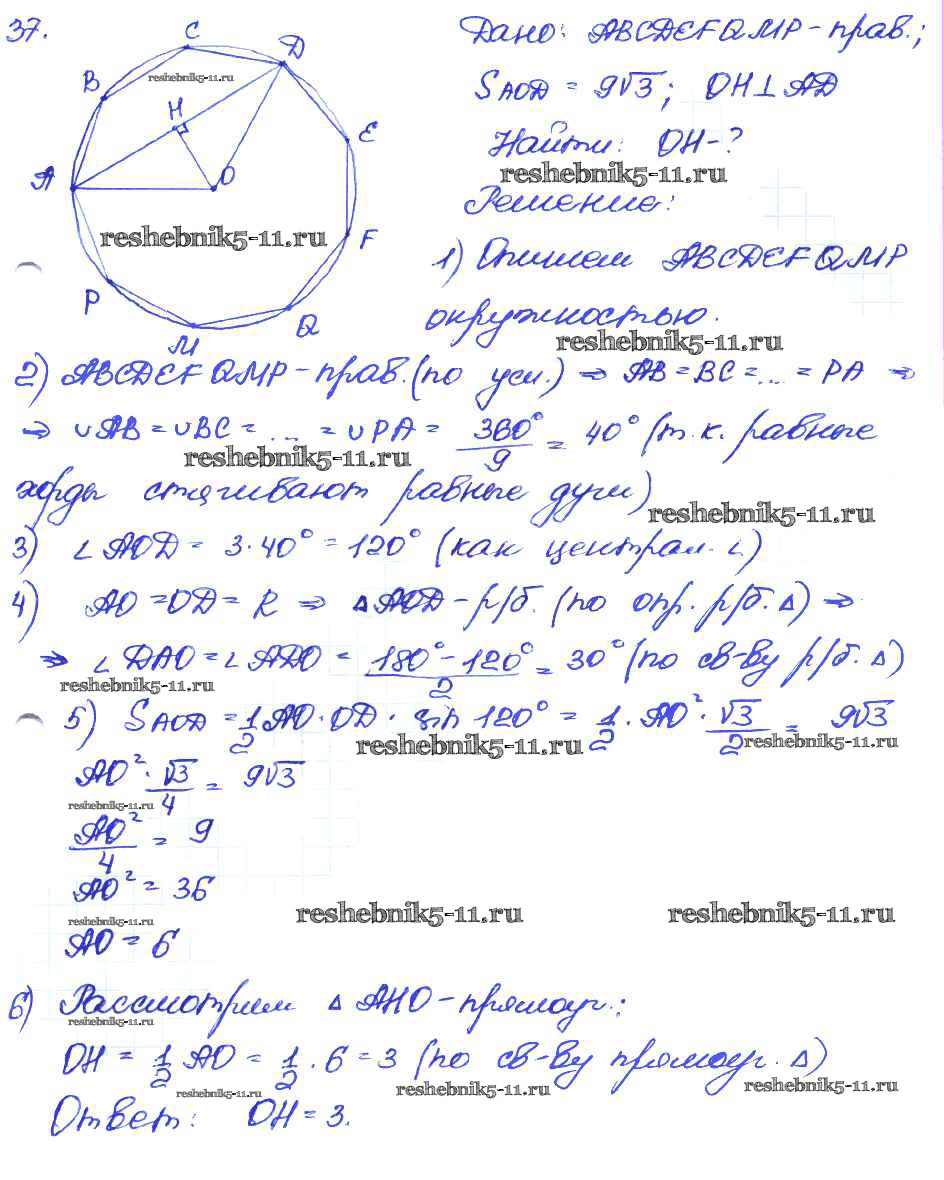 37.
Дано: ABCDEFQMP - прав.;
C
D
reshebnik5-11.ru
B
S AOD = 9√3; OH ⊥ AD
H
E
Найти: OH - ?
A
O
reshebnik5-11.ru
Решение:
reshebnik5-11.ru
F
1) Опишем ABCDEFQMP
P
Q
окружностью.
M
reshebnik5-11.ru
2) ABCDEFQMP - прав. (по усл.) ⇒ AB = BC = ... = PA ⇒
⇒ ∪AB = ∪BC = ... = ∪PA = 360°/9 = 40° (т.к. равные
reshebnik5-11.ru
хорды стягивают равные дуги)
reshebnik5-11.ru
3) ∠AOD = 3·40° = 120° (как централ. ∠)
4) AO = OD = R ⇒ △AOD - р/б. (по опр. р/б. △) ⇒
⇒ ∠DAO = ∠ADO = (180° - 120°)/2 = 30° (по св-ву р/б. △)
reshebnik5-11.ru
5) S AOD = 1/2 AO · OD · sin 120° = 1/2 · AO² · √3/2 = 9√3
reshebnik5-11.ru
reshebnik5-11.ru
AO² · √3/4 = 9√3
reshebnik5-11.ru
AO²/4 = 9
AO² = 36
reshebnik5-11.ru
reshebnik5-11.ru
reshebnik5-11.ru
AO = 6
6) Рассмотрим △AHO - прямоуг.;
reshebnik5-11.ru
OH = 1/2 AO = 1/2 · 6 = 3 (по св-ву прямоуг. △)
reshebnik5-11.ru
reshebnik5-11.ru
reshebnik5-11.ru
Ответ: OH = 3.